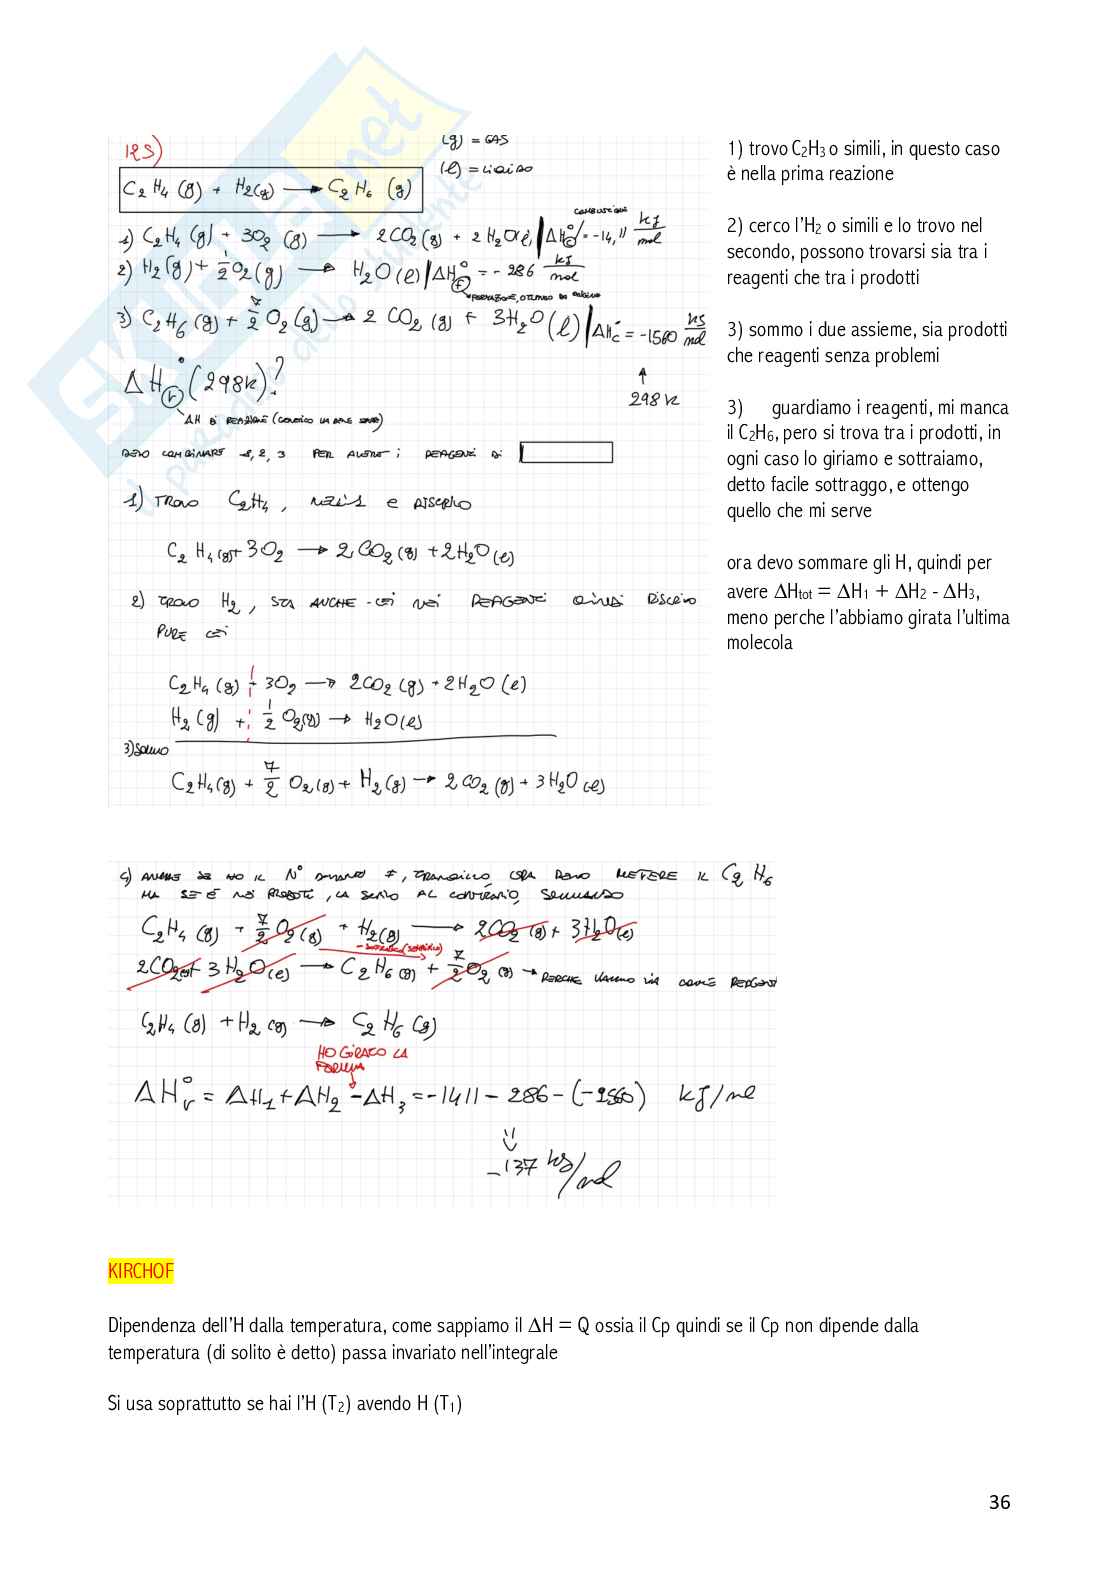 125)
(g) = GAS
(l) = LIQUIDO
C2H4 (g) + H2(g) → C2H6 (g)
COMBUSTIONE
1) C2H4 (g) + 3O2 (g) → 2CO2(g) + 2H2O(l) | ΔH°c = -14,11 kJ/mol
2) H2(g) + 1/2 O2(g) → H2O(l) | ΔH°f = -286 kJ/mol
FORMAZIONE,
3) C2H6(g) + 7/2 O2(g) → 2 CO2(g) + 3H2O(l) | ΔH°c = -1560 kJ/mol
↑
298 K
ΔH°r (298K)?
ΔH DI REAZIONE (GENERICO)
DEVO COMBINARE 1, 2, 3 PER AVERE i REAGENTI DI
1) TROVO C2H4, NELL'1 E RISCRIVO
C2H4(g) + 3O2 → 2CO2(g) + 2H2O(l)
2) TROVO H2, STA ANCHE LEI NEI REAGENTI QUINDI RISCRIVO
PURE LEI
C2H4(g) + 3O2 → 2CO2(g) + 2H2O(l)
H2(g) + 1/2 O2(g) → H2O(l)
3) SOMMO
C2H4(g) + 7/2 O2(g) + H2(g) → 2CO2(g) + 3H2O(l)
1) trovo C2H3 o simili, in questo caso
è nella prima reazione
2) cerco l'H2 o simili e lo trovo nel
secondo, possono trovarsi sia tra i
reagenti che tra i prodotti
3) sommo i due assieme, sia prodotti
che reagenti senza problemi
3) guardiamo i reagenti, mi manca
il C2H6, pero si trova tra i prodotti, in
ogni caso lo giriamo e sottraiamo,
detto facile sottraggo, e ottengo
quello che mi serve
ora devo sommare gli H, quindi per
avere ΔHtot = ΔH1 + ΔH2 - ΔH3,
meno perche l'abbiamo girata l'ultima
molecola
4) ANCHE SE HO IL N° DAVANTI ≠, TRANQUILLO, ORA DEVO METTERE IL C2H6
MA SE È NEI PRODOTTI, LA SCRIVO AL CONTRARIO,
C2H4(g) + 7/2 O2(g) + H2(g) → 2CO2(g) + 3H2O(l)
2CO2(g) + 3H2O(l) → C2H6(g) + 7/2 O2(g) → PERCHE VANNO VIA COME REAGENTI
C2H4(g) + H2(g) → C2H6(g)
HO GIRATO LA
FORMULA
ΔH°r = ΔH1 + ΔH2 - ΔH3 = -1411 - 286 - (-1560) kJ/mol
-137 kJ/mol
KIRCHOF
Dipendenza dell'H dalla temperatura, come sappiamo il ΔH = Q ossia il Cp quindi se il Cp non dipende dalla
temperatura (di solito è detto) passa invariato nell'integrale
Si usa soprattutto se hai l'H (T2) avendo H (T1)
36